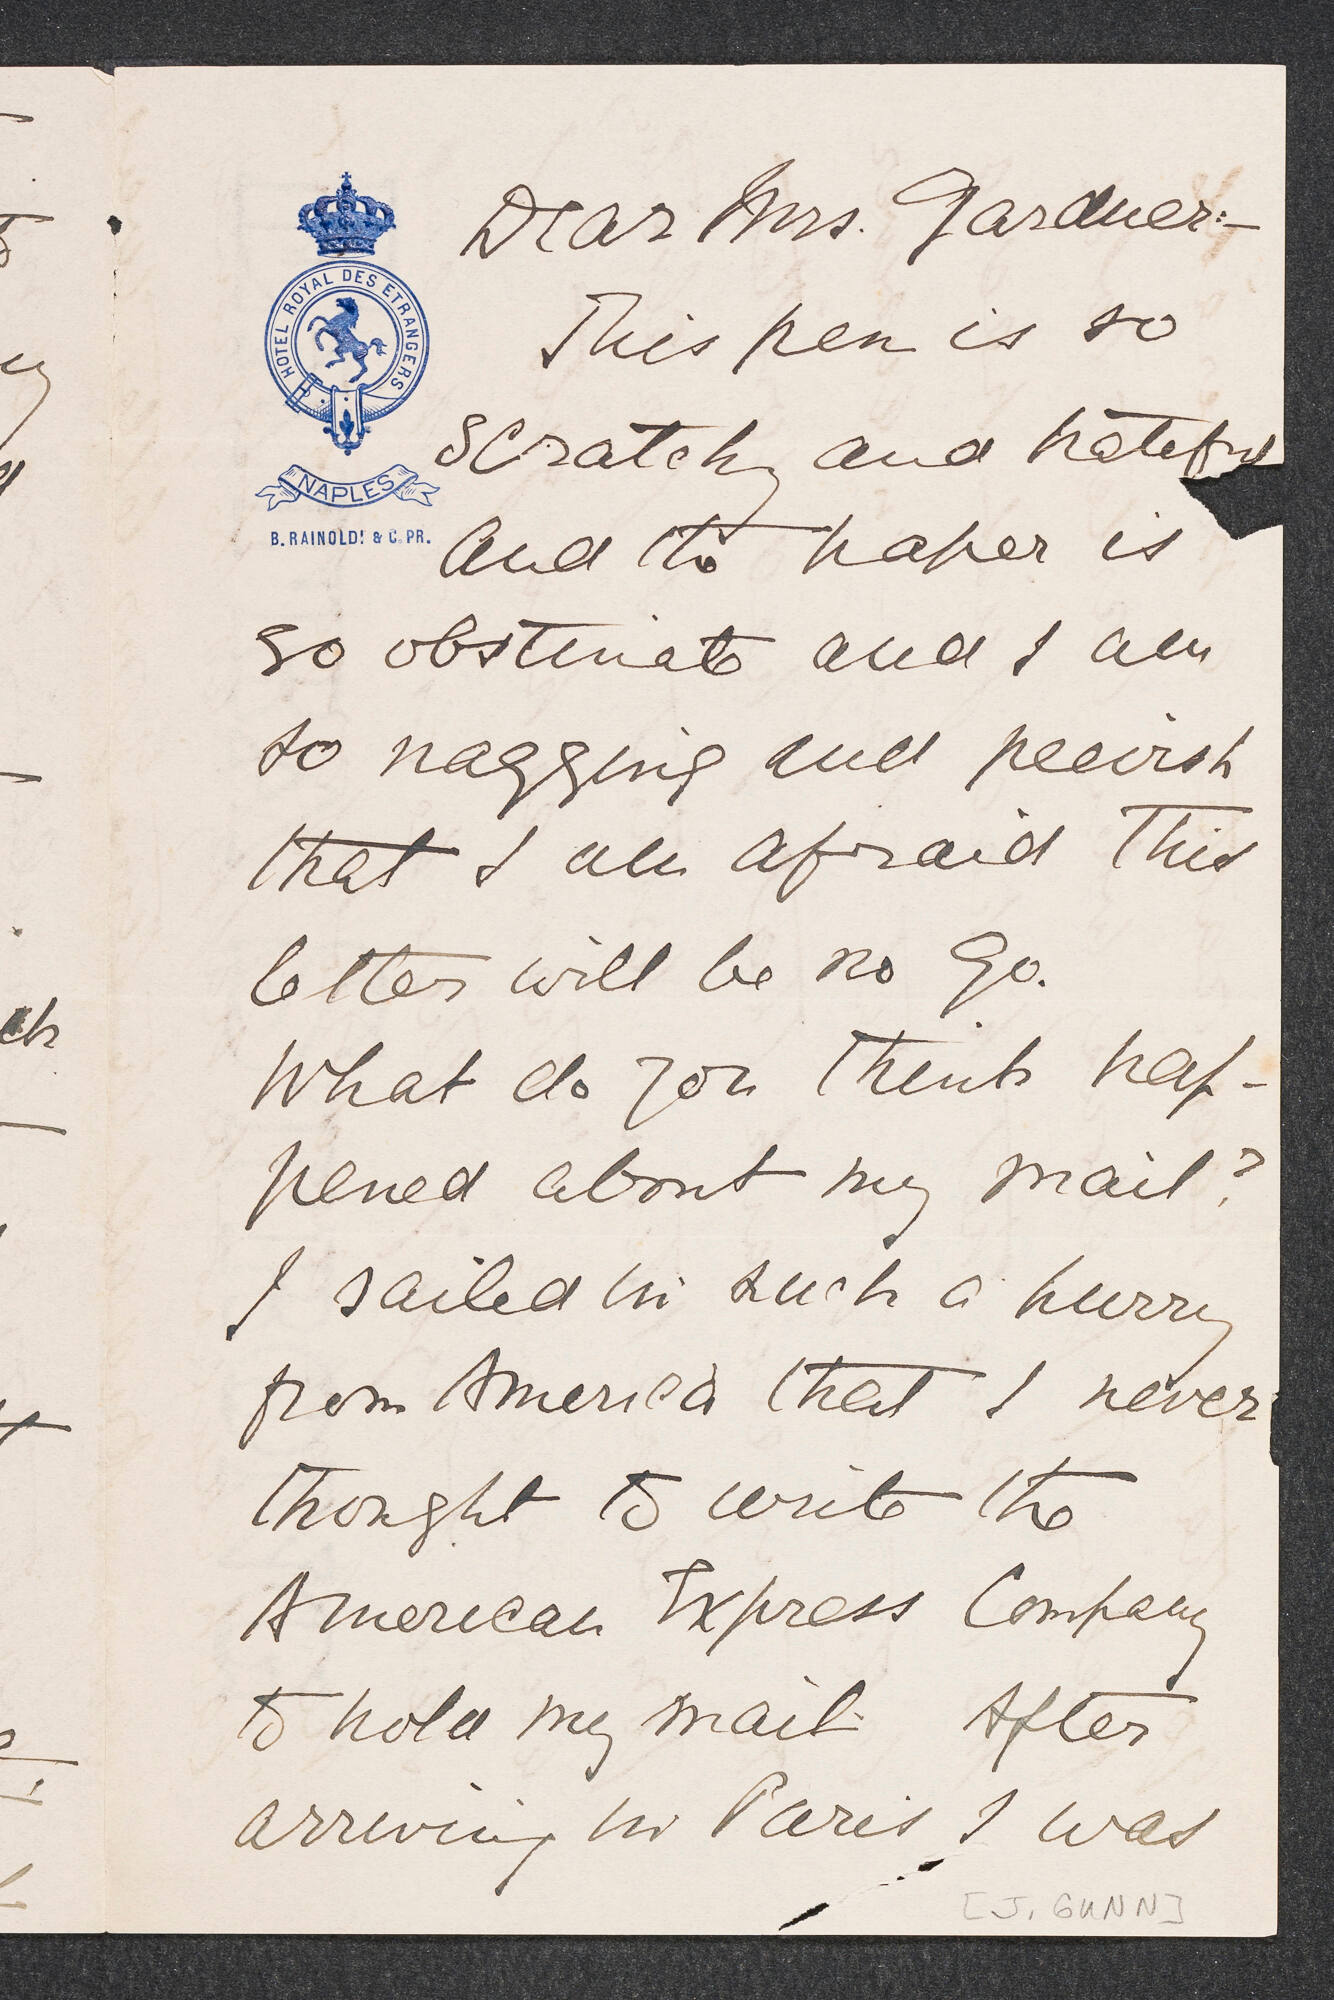 HOTEL ROYAL DES ETRANGERS
NAPLES
B. RAINOLDI & C. PR.
Dear Mrs. Gardner:—
This pen is so
scratchy and hateful
and the paper is
so obstinate and I am
so nagging and peevish
that I am afraid this
letter will be no go.
What do you think hap-
pened about my mail?
I sailed in such a hurry
from America that I never
thought to write the
American Express Company
to hold my mail. After
arriving in Paris I was
[J. GUNN]